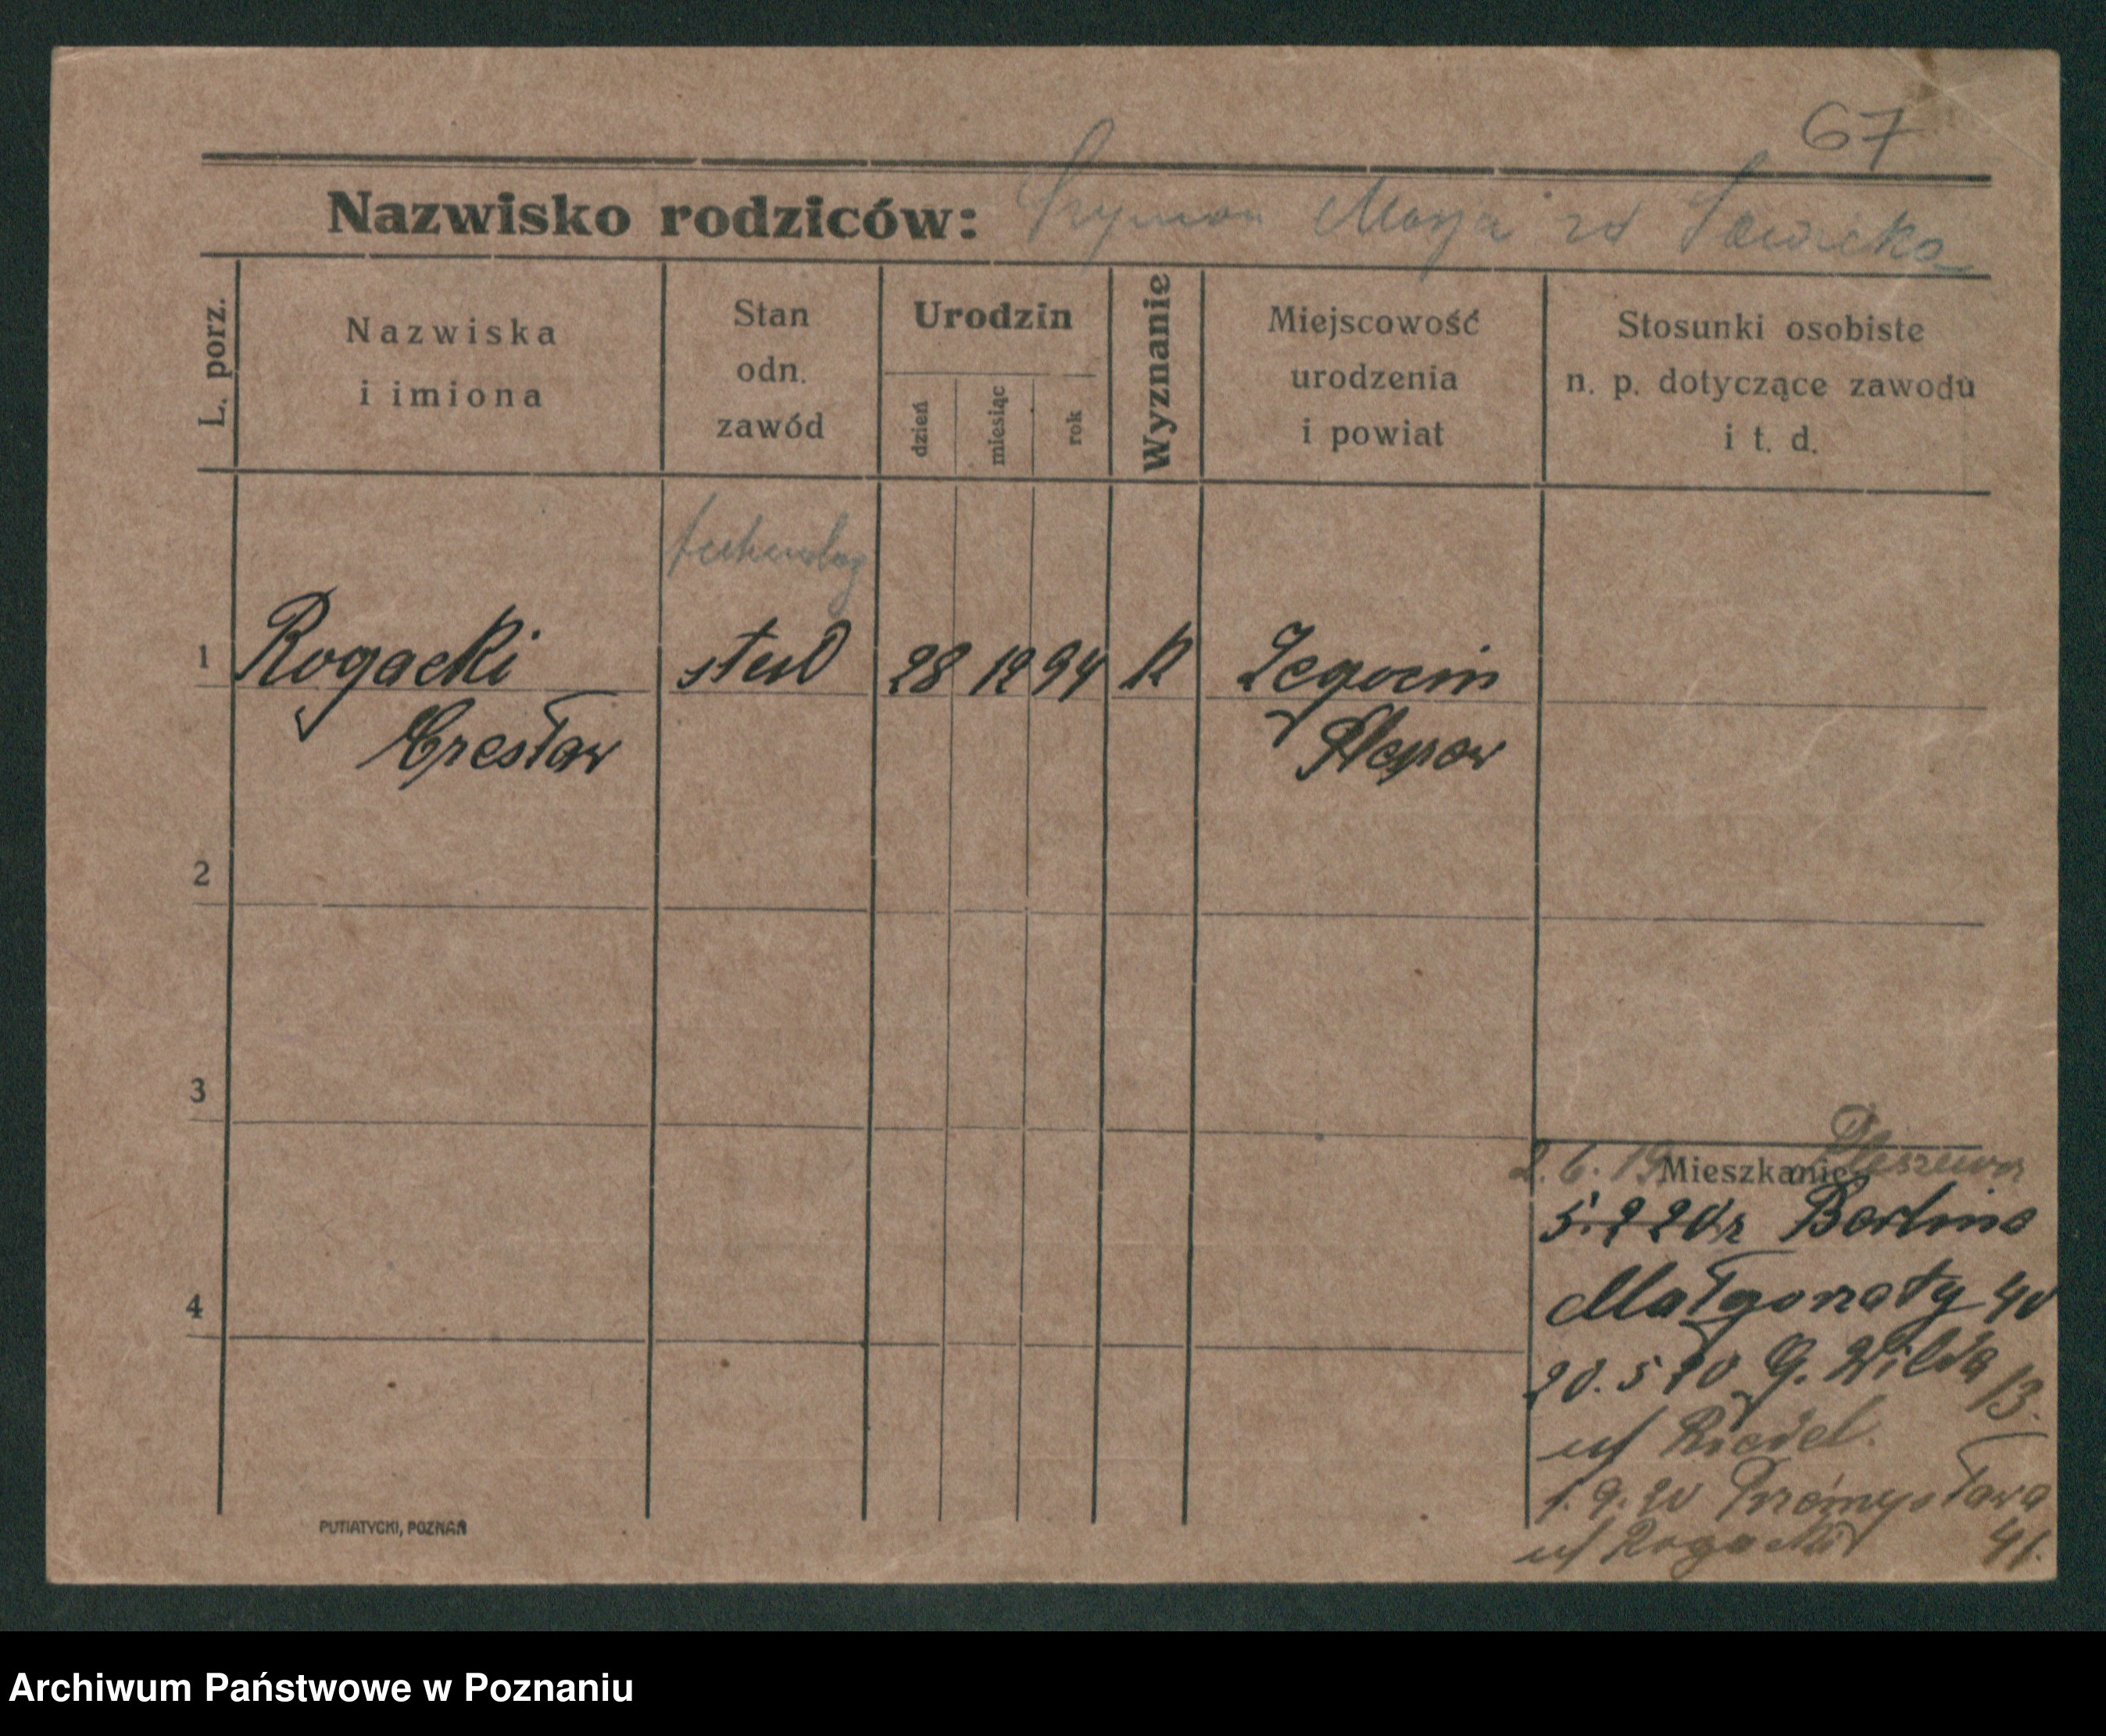 67
Nazwisko rodziców: Szymon Marja zd Sawicka
L. porz.
Nazwiska
i imiona
Stan
odn.
zawód
Urodzin
dzień
miesiąc
rok
Wyznanie
Miejscowość
urodzenia
i powiat
Stosunki osobiste
n. p. dotyczące zawodu
i t. d.
technolog
1 Rogacki stud 28 12 94 k Żegocin
Czesław Pleszew
2
3
4
2.6.19 Pleszewa
Mieszkanie
Berlina
Małgorzaty 40
20.5 20 G. Wilda 13.
u/ Riedel.
1.9.20 Przemysława
u/ Rogacki 41.
PUTIATYCKI, POZNAŃ
Archiwum Państwowe w Poznaniu